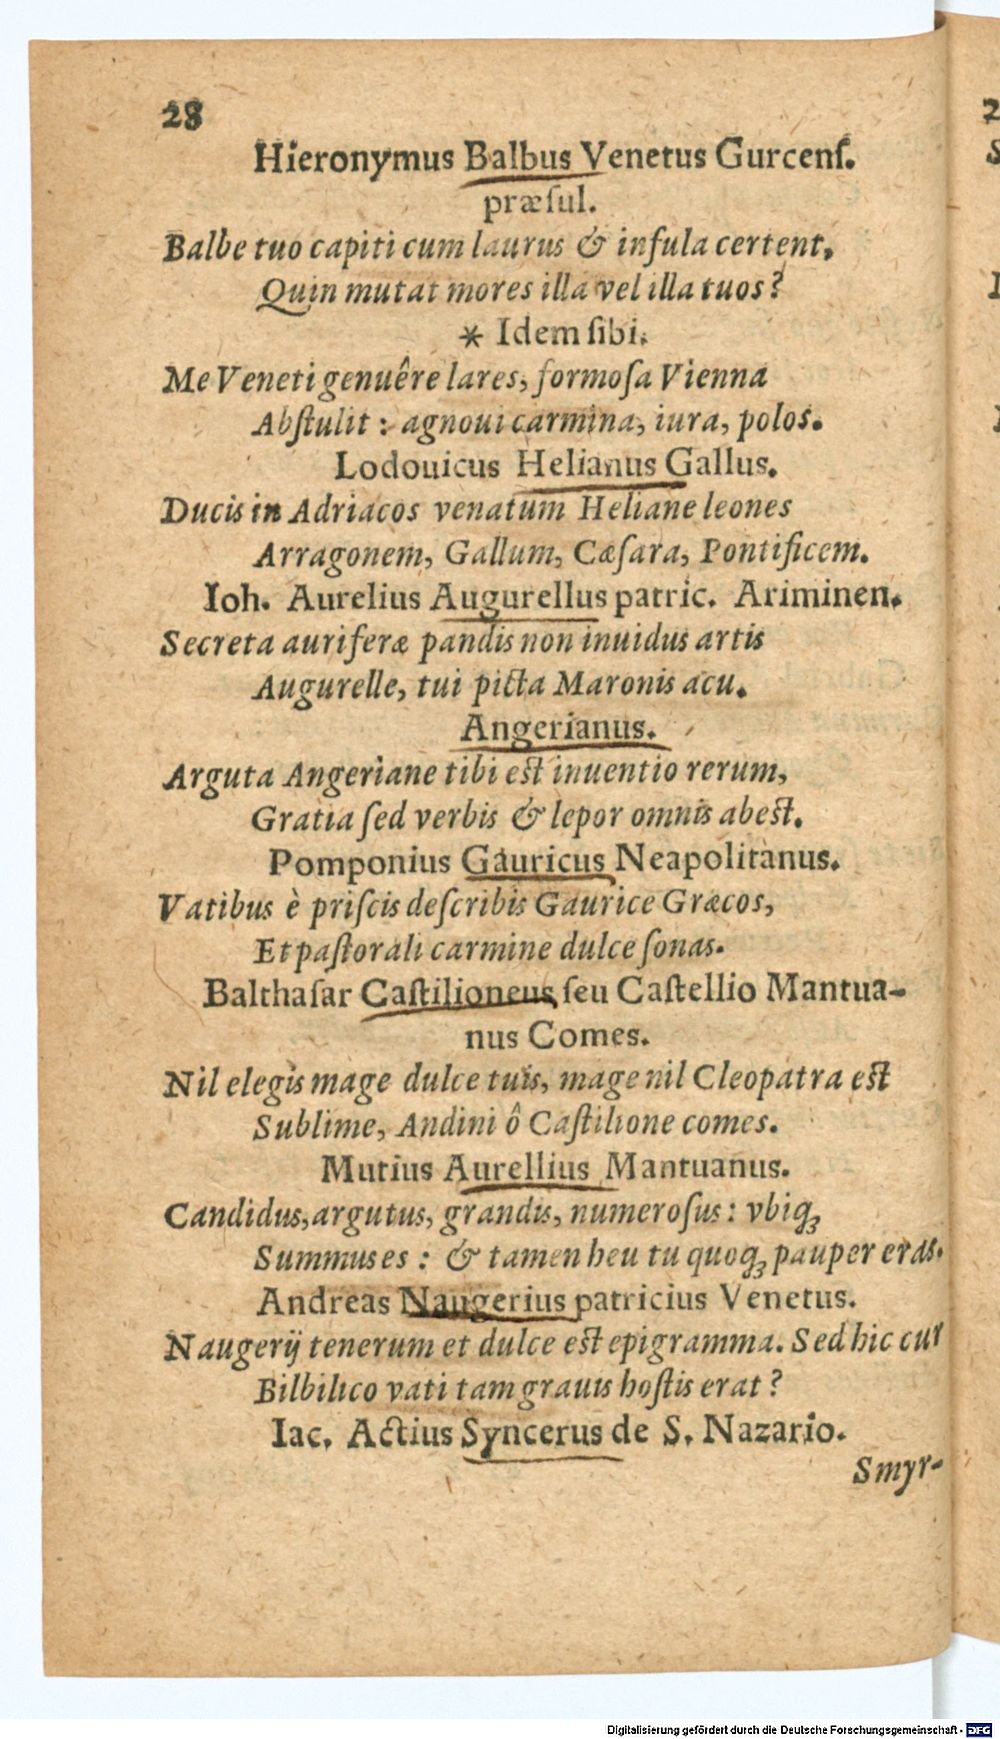 28
Hieronymus Balbus Venetus Gurcenſ.
præſul.
Balbe tuo capiti cum laurus & infula certent,
Quin mutat mores illa vel illa tuos?
* Idem ſibi.
Me Veneti genuêre lares, formoſa Vienna
Abſtulit: agnoui carmina, iura, polos.
Lodouicus Helianus Gallus.
Ducis in Adriacos venatum Heliane leones
Arragonem, Gallum, Cæſara, Pontificem.
Ioh. Aurelius Augurellus patric. Ariminen.
Secreta auriferæ pandis non inuidus artis
Augurelle, tui picta Maronis acu.
Angerianus.
Arguta Angeriane tibi est inuentio rerum,
Gratia ſed verbis & lepor omnis abest.
Pomponius Gauricus Neapolitanus.
Vatibus è priſcis deſcribis Gaurice Græcos,
Et paſtorali carmine dulce ſonas.
Balthaſar Caſtilioneus ſeu Caſtellio Mantua-
nus Comes.
Nil elegis mage dulce tuis, mage nil Cleopatra est
Sublime, Andini ô Caſtilione comes.
Mutius Aurellius Mantuanus.
Candidus, argutus, grandis, numeroſus: vbiq;
Summus es: & tamen heu tu quoq; pauper eras.
Andreas Naugerius patricius Venetus.
Naugerij tenerum et dulce est epigramma. Sed hic cur
Bilbilico vati tam grauis hoſtis erat?
Iac. Actius Syncerus de S. Nazario.
Smyr-
Digitalisierung gefördert durch die Deutsche Forschungsgemeinschaft - DFG